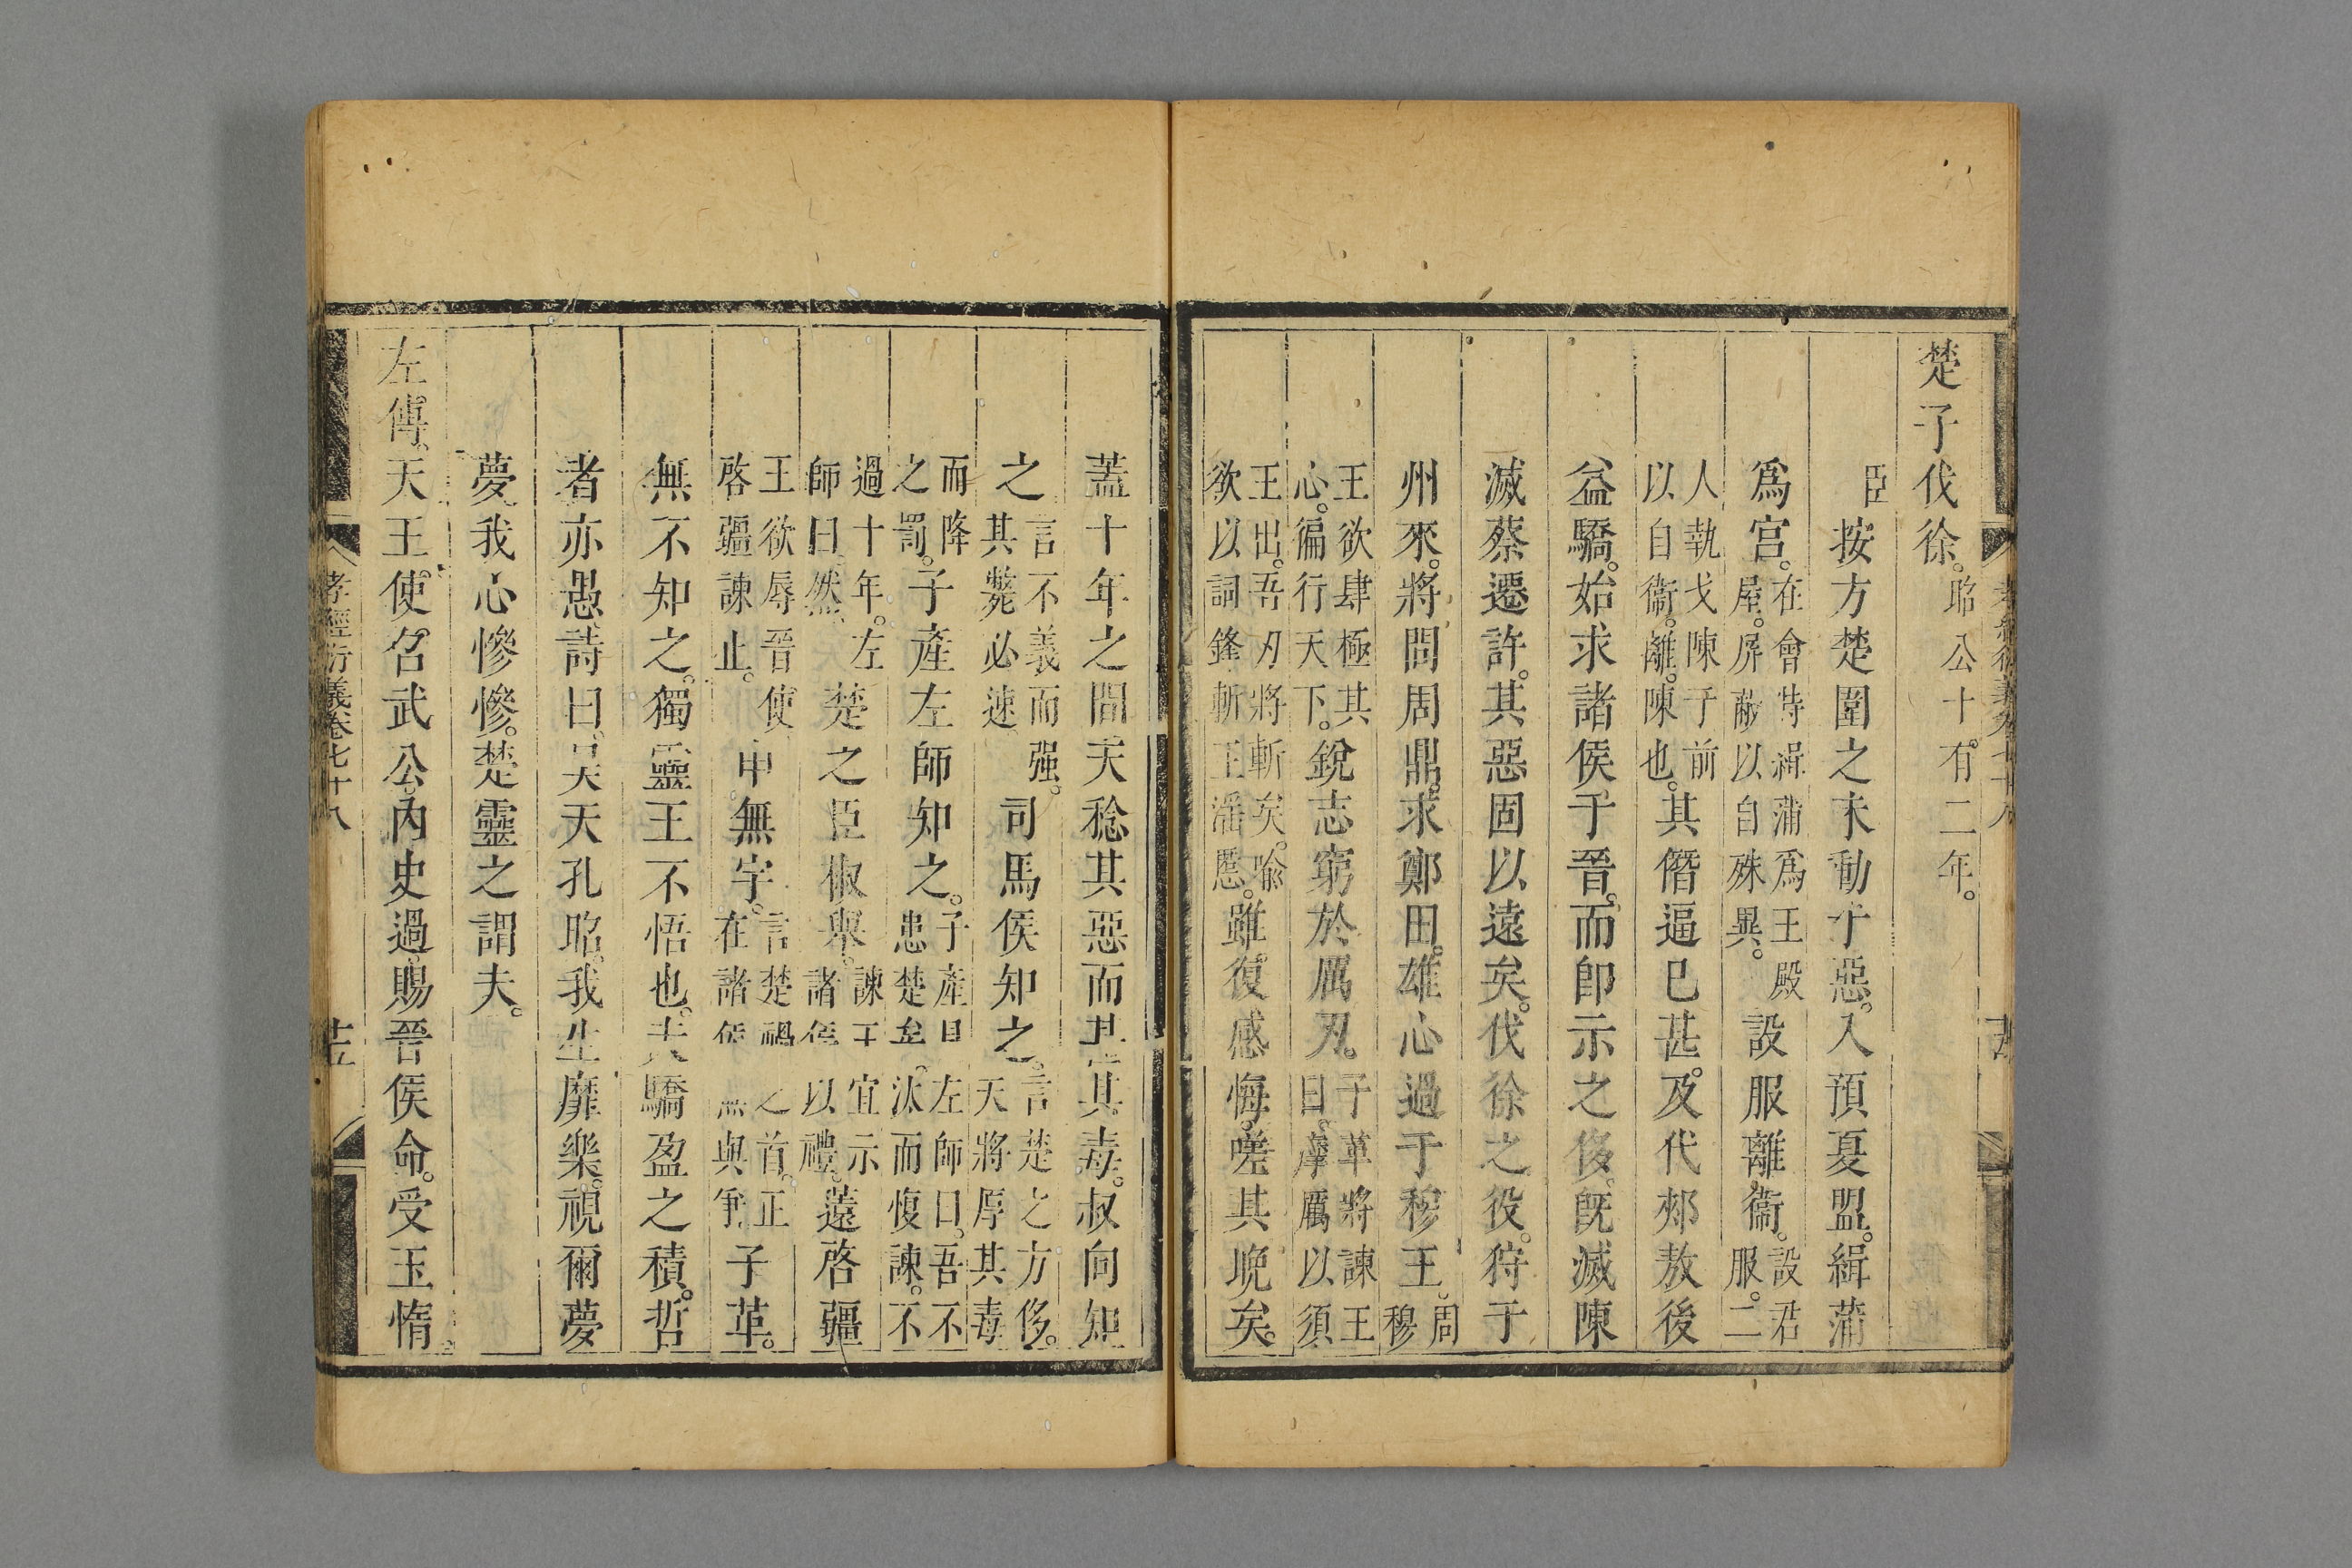 楚子伐徐。昭公十有二年。
臣按方楚圍之未動于惡。入預夏盟。緝蒲
爲宫。在會特緝蒲爲王殿屋。屏蔽以自殊異。設服離衞。設君服。二
人執戈陳于前以自衞。離。陳也。其僭逼已甚。及代郟敖後
益驕。始求諸侯于晉。而卽示之侈。旣滅陳
滅蔡遷許。其惡固以遠矣。伐徐之役。狩于
州來。將問周鼎。求鄭田。雄心過于穆王。周穆
王欲肆極其心。徧行天下。銳志窮於厲刃。子革將諫王曰。摩厲以須
王出。吾刃將斬矣。喻欲以詞鋒斬王滛慝。雖復感悔。嗟其晚矣。
孝經衍義卷七十八
蓋十年之間天稔其惡而其毒。叔向知
之。言不義而强。其斃必速。司馬侯知之。言楚之方侈。天將厚其毒
而降之罰。子產左師知之。子產曰患楚矣。左師曰。吾不汰而愎諫。不
過十年。左師曰。然。楚之臣椒舉。諫王宜示諸侯以禮。薳啓疆
王欲辱晉使啓疆諫止。申無宇。言楚禍之首。正在諸侯無與爭。子革。
無不知之。獨靈王不悟也。夫驕盈之積。哲
者亦愚。詩曰。昊天孔昭。我生靡樂。視爾夢
夢我心慘慘。楚靈之謂夫。
左傳。天王使召武公。內史過。賜晉侯命。受玉惰。
孝經衍義卷七十八